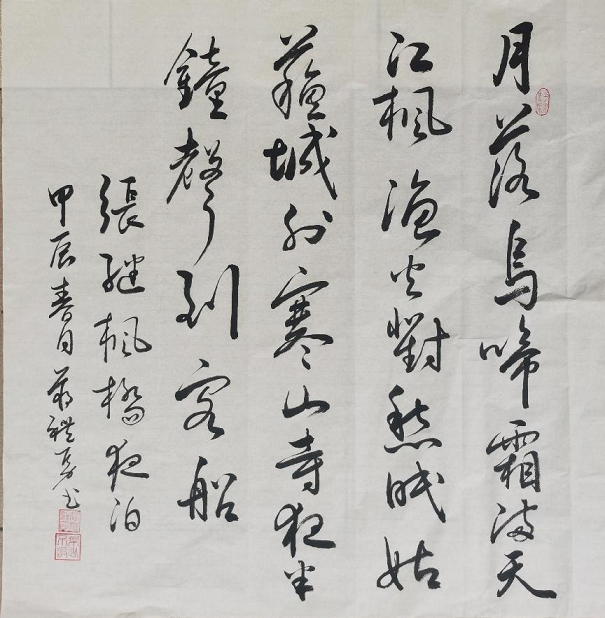 月落烏啼霜滿天
江楓漁火對愁眠姑
蘇城外寒山寺夜半
鐘聲到客船
張繼楓橋夜泊
甲辰春日蔣禮書